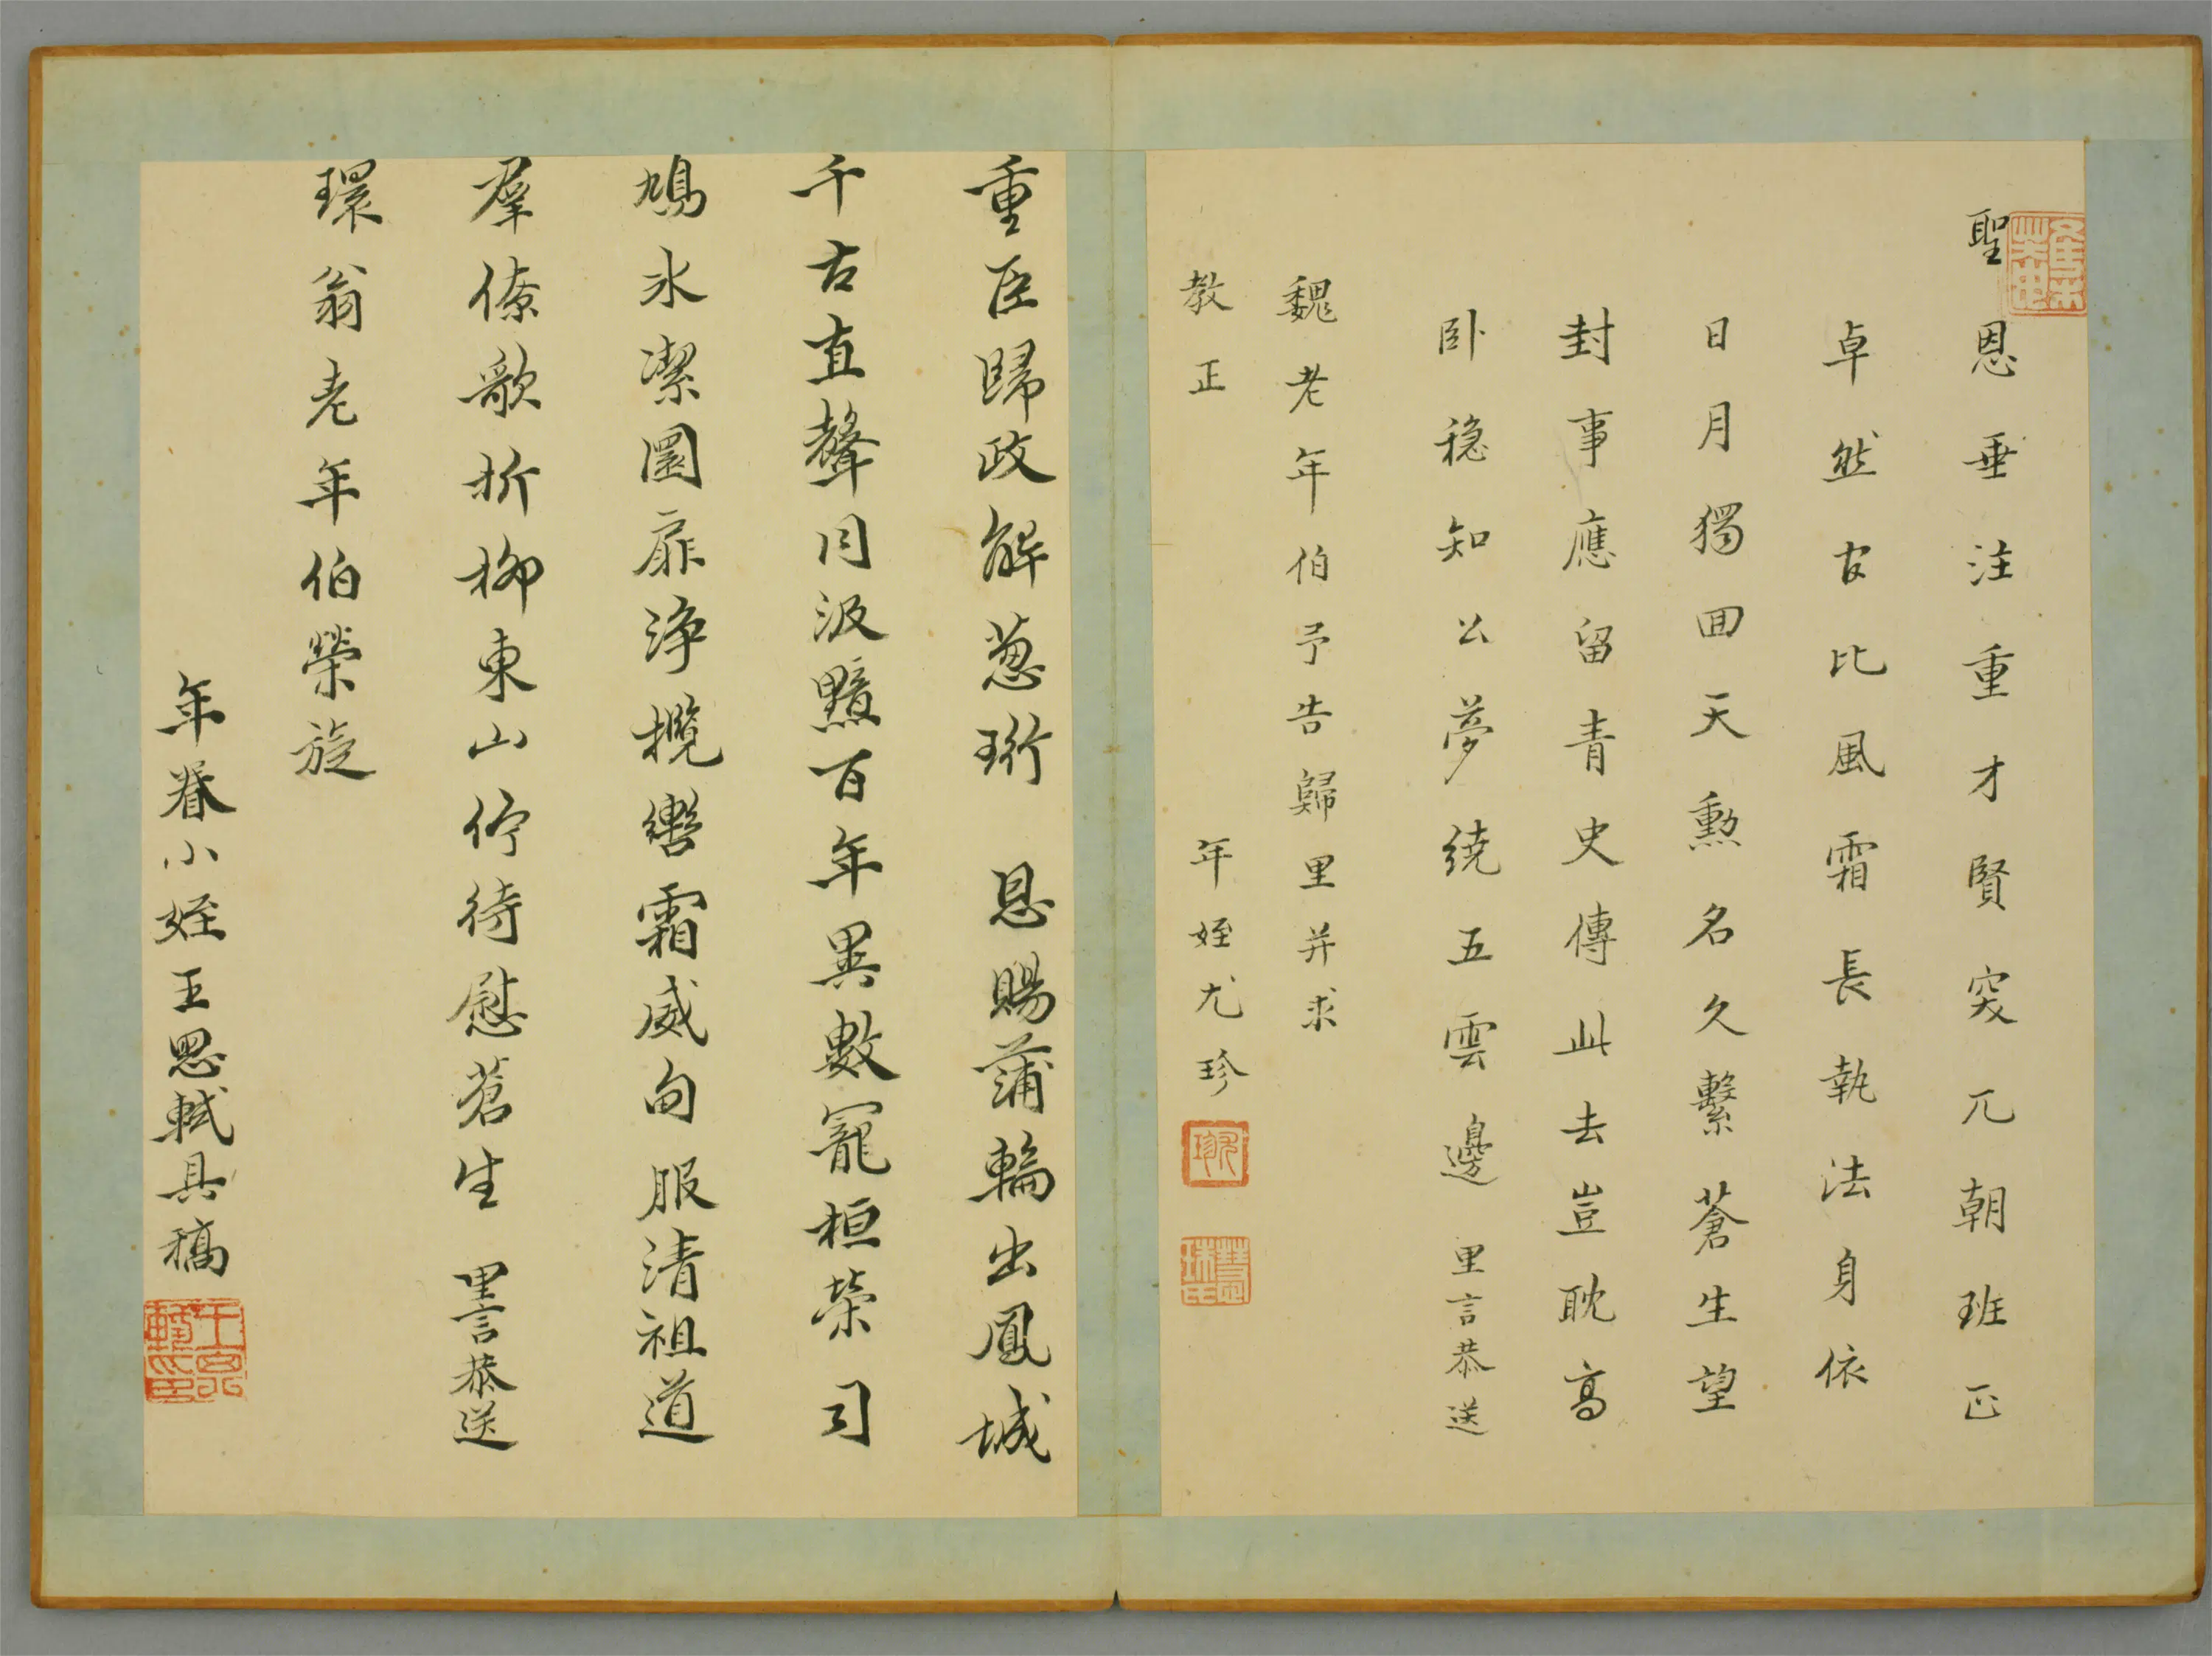 聖恩垂注重才賢突兀朝班正
卓然古比風霜長執法身依
日月獨回天勳名久繫蒼生望
封事應留青史傳此去豈耽高
卧穩知公夢繞五雲邊 里言恭送
魏老年伯予告歸里并求
教正
年姪尤珍
重臣歸政解葱珩 恩賜蒲輪出鳳城
千古直聲同汲黯百年異數寵桓榮司
鳩氷潔圜扉浄攬轡霜威甸服清祖道
羣僚歌折柳東山佇待慰蒼生 里言恭送
環翁老年伯榮旋
年眷小姪王思軾具稿